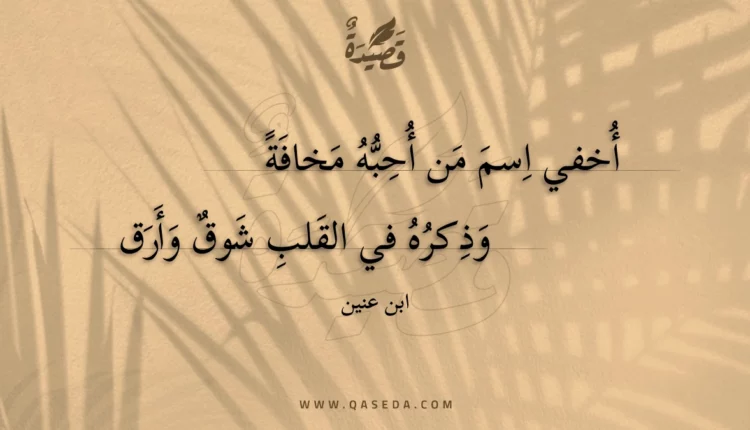 قَصِيْدَةٌ
أُخفي اِسمَ مَن أُحِبُّهُ مَخافَةً
وَذِكرُهُ في القَلبِ شَوقٌ وَأَرَق
ابن عنين
WWW.QASEDA.COM